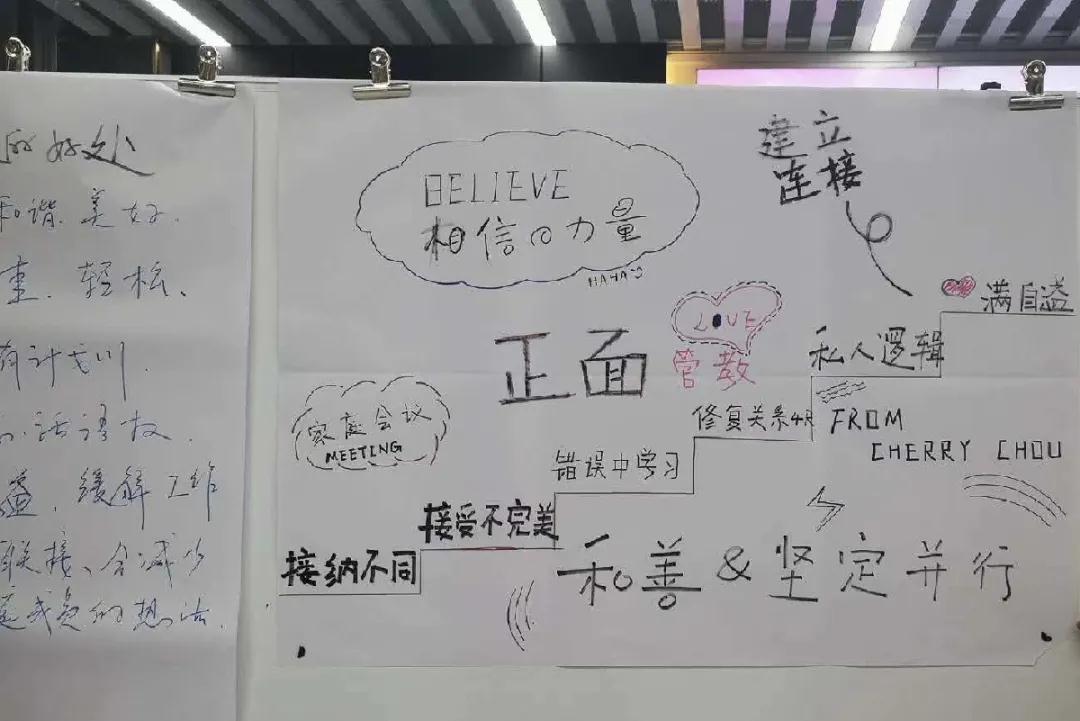 的好处
和谐、美好、
重、轻松、
有计划
话语权、
缓解工作
联接、会减少
成员的想法、
BELIEVE
相信の力量
HAHA
建立
连接
LOVE
正面
管教
满自溢
私人逻辑
家庭会议
MEETING
修复关系4R
FROM
CHERRY CHOU
错误中学习
接受不完美
接纳不同
和善&坚定并行